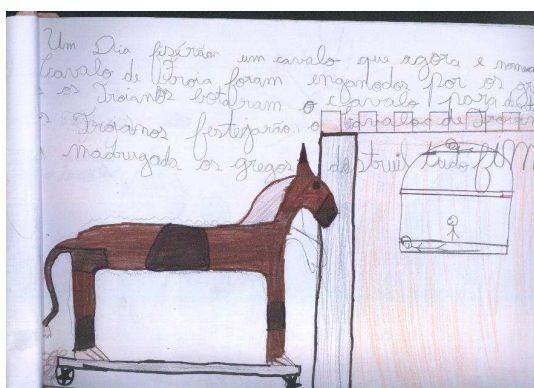 Um Dia fizérão um cavalo que agora e nomea
cavalo de Troia foram enganados por os gr
os Troianos botaram o clavalo para d
Troianos festejarão o cavalo de Troia
madrugada os gregos destruil tudo FIM